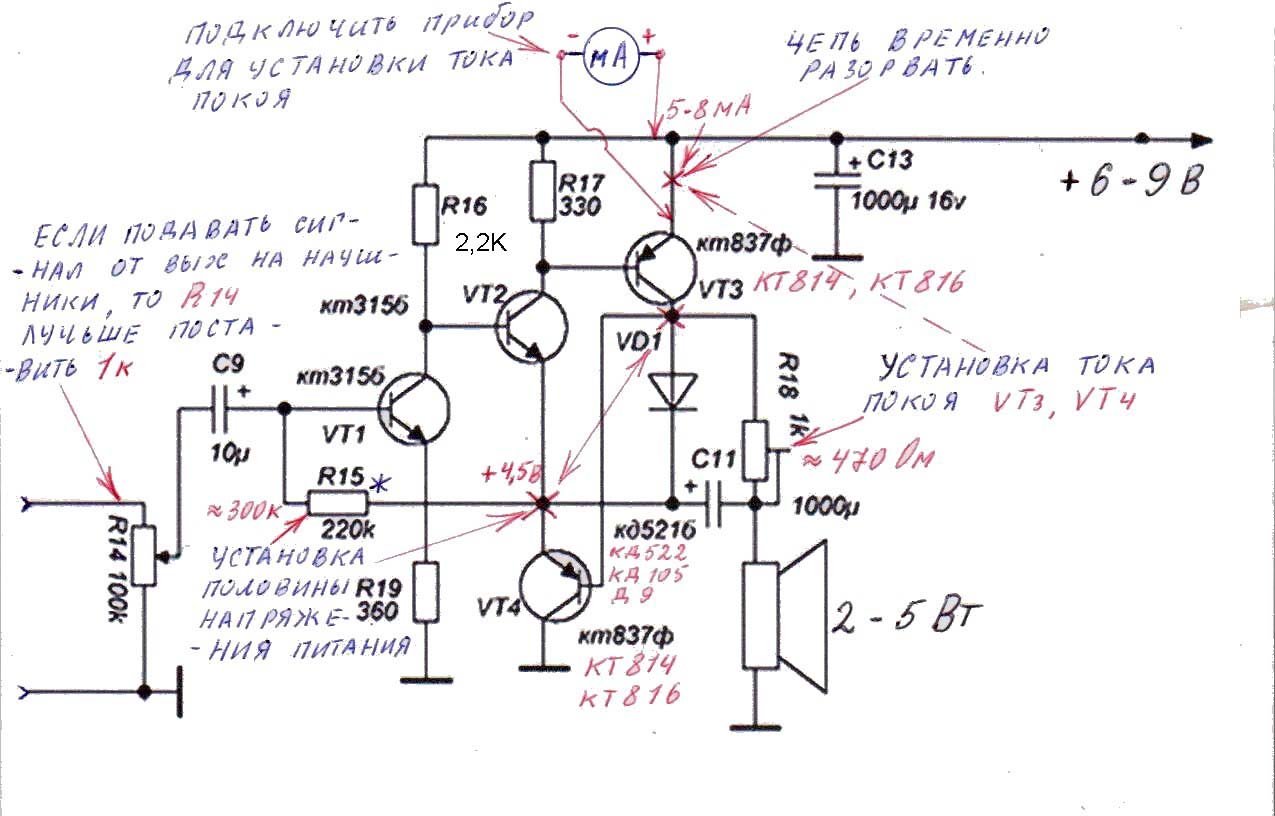 ПОДКЛЮЧИТЬ ПРИБОР
ДЛЯ УСТАНОВКИ ТОКА
ПОКОЯ
- мА +
ЦЕПЬ ВРЕМЕННО
РАЗОРВАТЬ.
5-8 мА
+ C13
1000µ 16v
+ 6 - 9 В
R17
330
R16
2,2K
кт837ф
VT3
КТ814, КТ816
ЕСЛИ ПОДАВАТЬ СИГ-
-НАЛ ОТ ВЫХ НА НАУШ-
НИКИ, ТО R14
ЛУЧЬШЕ ПОСТА -
-ВИТЬ 1к
кт315б
VT2
VD1
C9
+
10µ
кт315б
VT1
УСТАНОВКА ТОКА
ПОКОЯ VT3, VT4
R18 1k
≈ 470 Ом
C11
+
1000µ
+4,5В
R15 *
≈300к
220k
УСТАНОВКА
ПОЛОВИНЫ
НАПРЯЖЕ-
-НИЯ ПИТАНИЯ
R19
360
R14 100k
кд521б
КД522
КД105
Д9
VT4
кт837ф
КТ814
КТ816
2 - 5 Вт